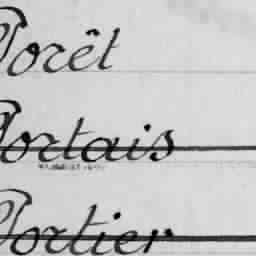 Porêt
Portais
Portier